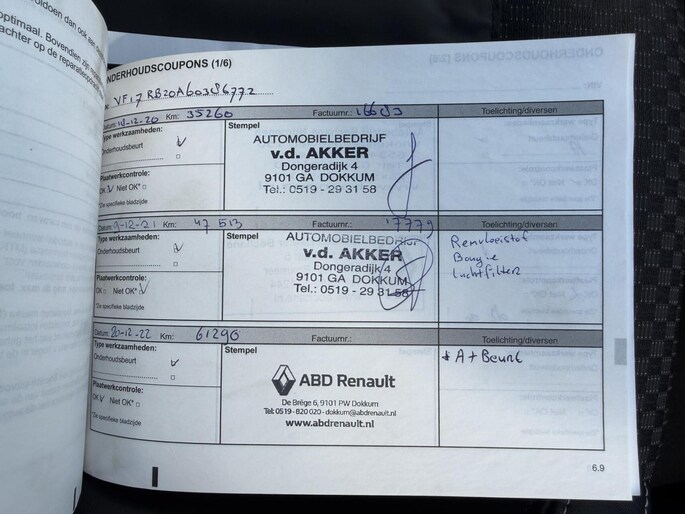 oldoen dan ook aan
optimaal. Bovendien zijn
achter op de reparatie
ONDERHOUDSCOUPONS (1/6)
Datum: 18-12-20 Km: 35260 Factuurnr.: Toelichting/diversen
Type werkzaamheden:
Onderhoudsbeurt v
Stempel
AUTOMOBIELBEDRIJF
v.d. AKKER
Dongeradijk 4
9101 GA DOKKUM
Tel.: 0519 - 29 31 58
Plaatwerkcontrole:
OK: v Niet OK*
*De specifieke bladzijde
Datum: 9-12-21 Km: 47513 Factuurnr.: 17779 Toelichting/diversen
Type werkzaamheden:
Onderhoudsbeurt v
Stempel
AUTOMOBIELBEDRIJF
v.d. AKKER
Dongeradijk 4
9101 GA DOKKUM
Tel.: 0519 - 29 31 58
Remvloeistof
Bougie
Luchtfilter
Plaatwerkcontrole:
OK Niet OK* v
*De specifieke bladzijde
Datum: 20-12-22 Km: 61290 Factuurnr.: Toelichting/diversen
Type werkzaamheden:
Onderhoudsbeurt v
Stempel
ABD Renault
De Brêge 6, 9101 PW Dokkum
Tel: 0519 - 820 020 - dokkum@abdrenault.nl
www.abdrenault.nl
* A + Beurt
Plaatwerkcontrole:
OK v Niet OK*
*De specifieke bladzijde
6.9